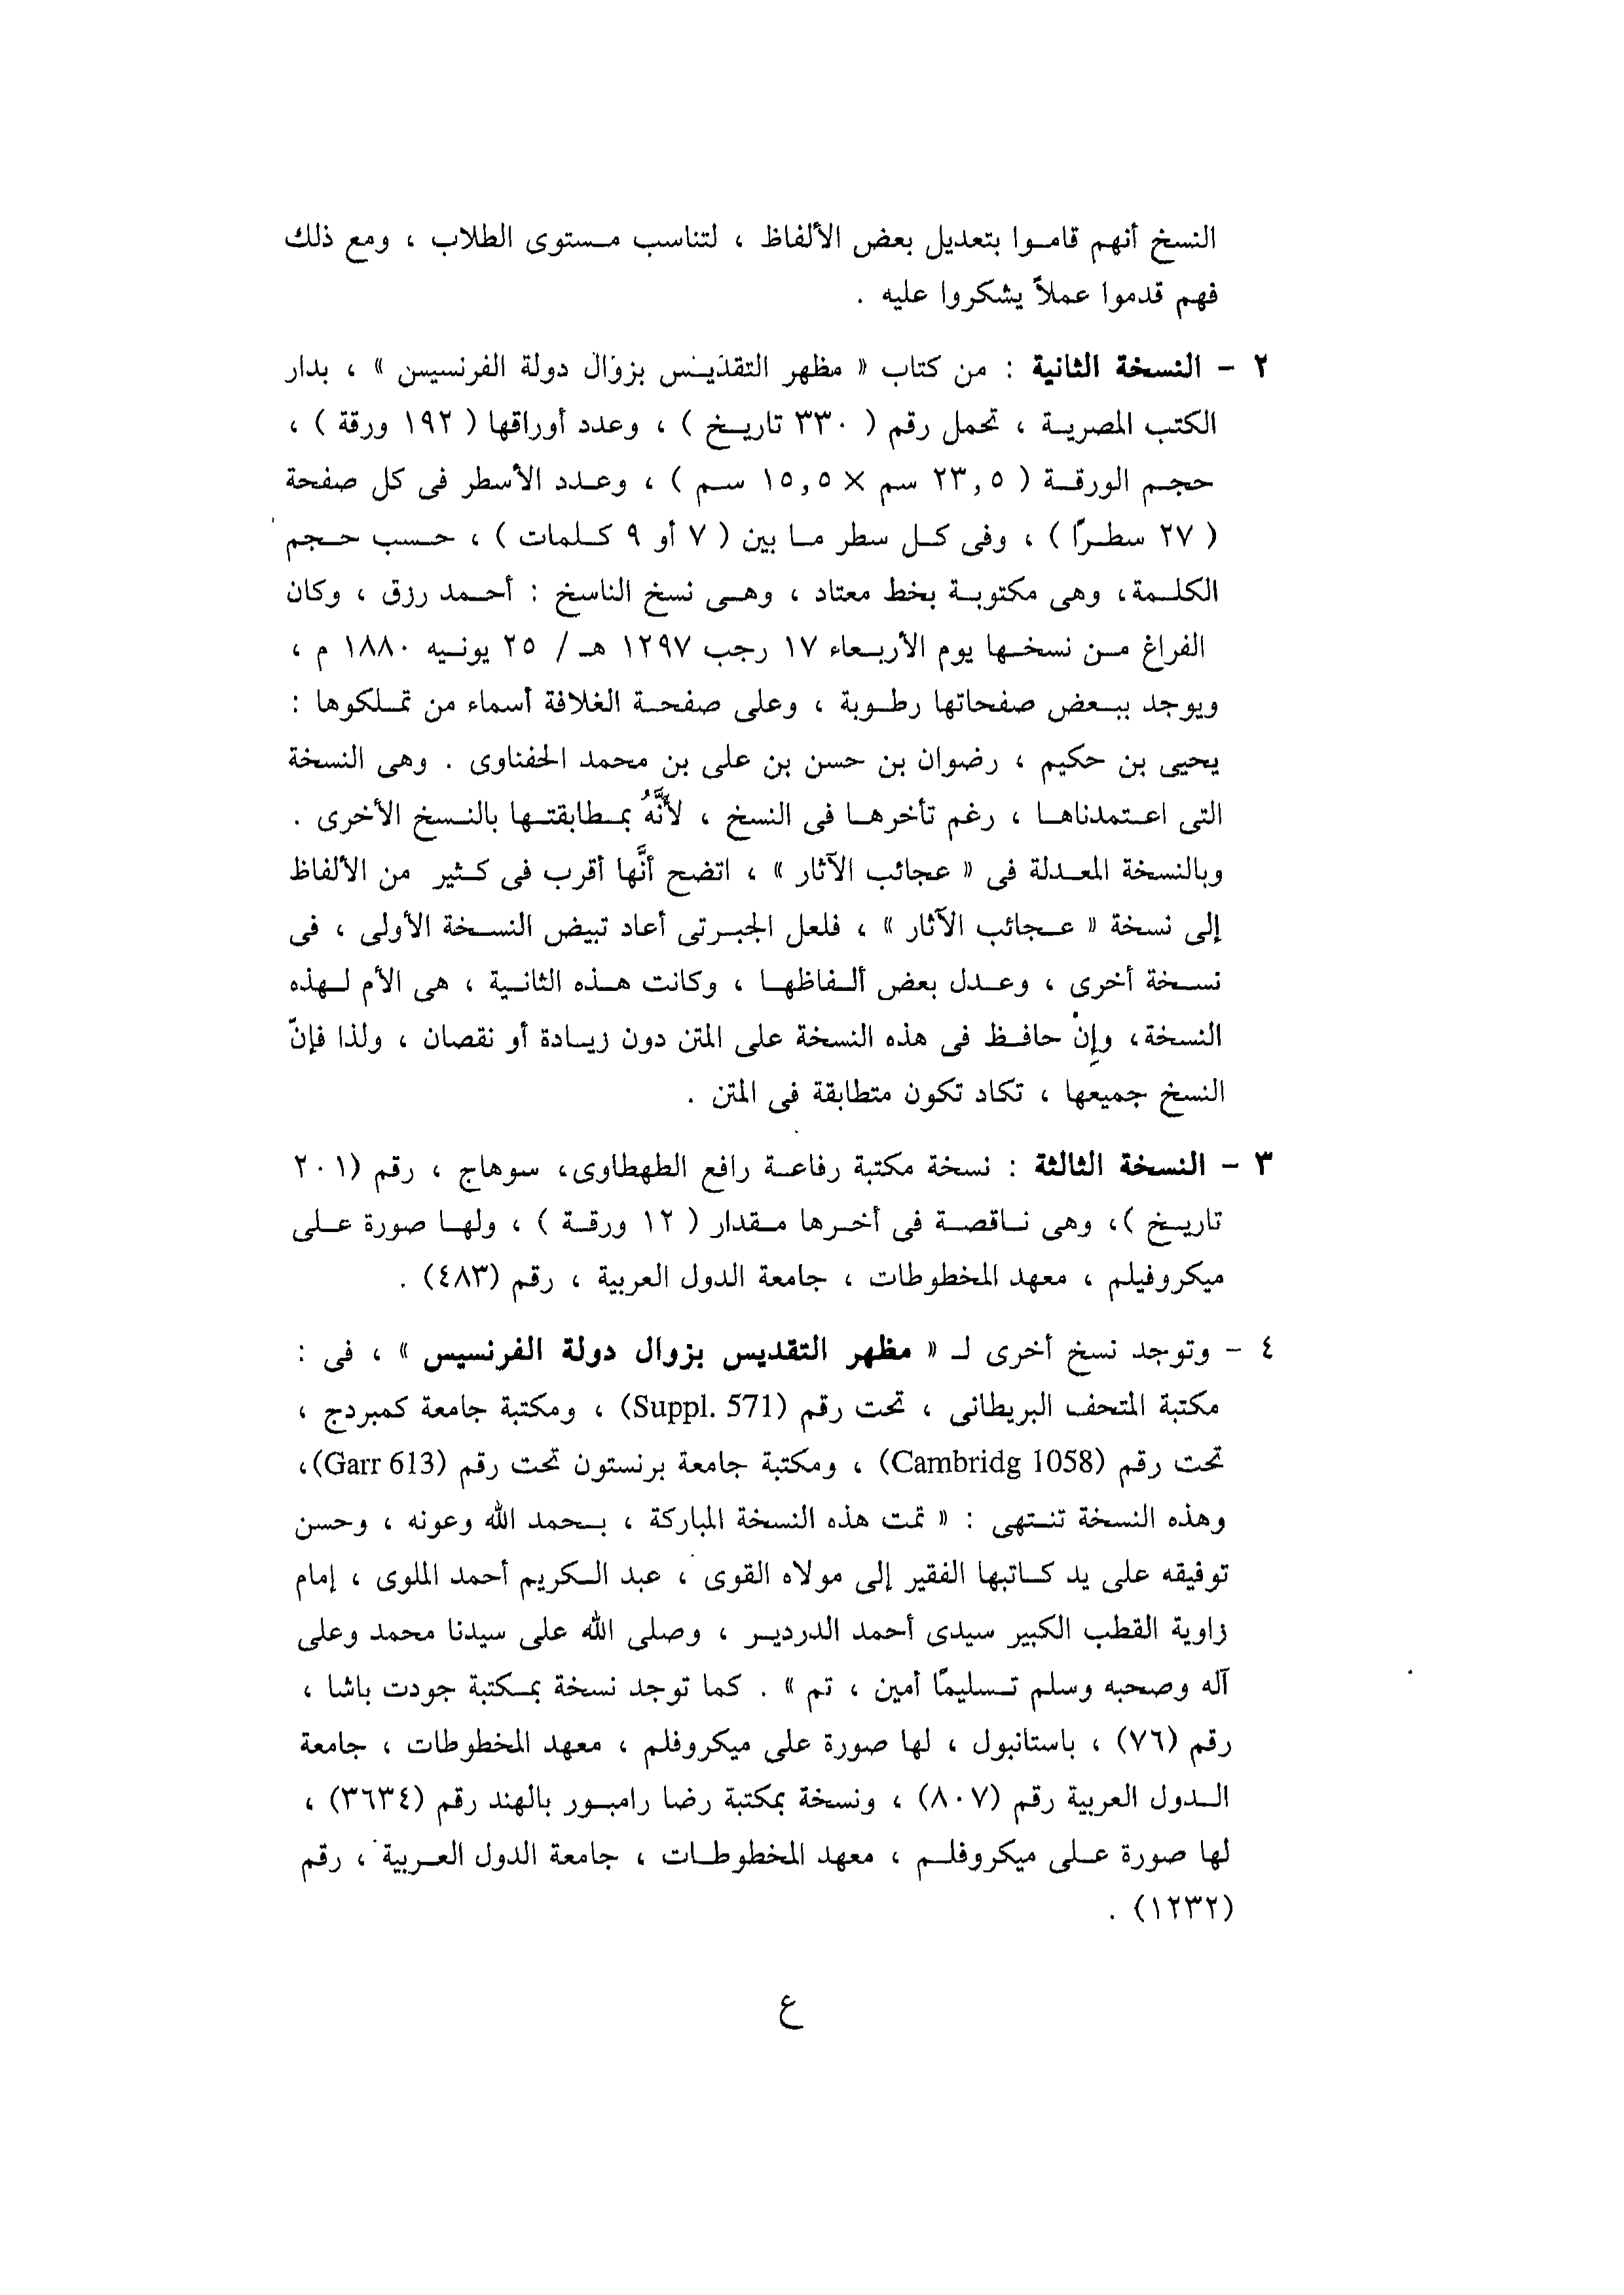 النسخ أنهم قاموا بتعديل بعض الألفاظ ، لتناسب مستوى الطلاب ، ومع ذلك
فهم قدموا عملاً يشكروا عليه .
٢ - النسخة الثانية : من كتاب « مظهر التقديس بزوال دولة الفرنسيس » ، بدار
الكتب المصرية ، تحمل رقم ( ٣٣٠ تاريخ ) ، وعدد أوراقها ( ١٩٢ ورقة ) ،
حجم الورقة ( ٢٣,٥ سم × ١٥,٥ سم ) ، وعدد الأسطر فى كل صفحة
( ٢٧ سطرًا ) ، وفى كل سطر ما بين ( ٧ أو ٩ كلمات ) ، حسب حجم
الكلمة، وهى مكتوبة بخط معتاد ، وهى نسخ الناسخ : أحمد رزق ، وكان
الفراغ من نسخها يوم الأربعاء ١٧ رجب ١٢٩٧ هـ / ٢٥ يونيه ١٨٨٠ م ،
ويوجد ببعض صفحاتها رطوبة ، وعلى صفحة الغلافة أسماء من تملكوها :
يحيى بن حكيم ، رضوان بن حسن بن على بن محمد الحفناوى . وهى النسخة
التى اعتمدناها ، رغم تأخرها فى النسخ ، لأنَّهُ بمطابقتها بالنسخ الأخرى .
وبالنسخة المعدلة فى « عجائب الآثار » ، اتضح أنَّها أقرب فى كثير من الألفاظ
إلى نسخة « عجائب الآثار » ، فلعل الجبرتى أعاد تبيض النسخة الأولى ، فى
نسخة أخرى ، وعدل بعض ألفاظها ، وكانت هذه الثانية ، هى الأم لهذه
النسخة، وإنْ حافظ فى هذه النسخة على المتن دون زيادة أو نقصان ، ولذا فإنّ
النسخ جميعها ، تكاد تكون متطابقة فى المتن .
٣ - النسخة الثالثة : نسخة مكتبة رفاعة رافع الطهطاوى، سوهاج ، رقم (٢٠١
تاريخ )، وهى ناقصة فى أخرها مقدار ( ١٢ ورقة ) ، ولها صورة على
ميكروفيلم ، معهد المخطوطات ، جامعة الدول العربية ، رقم (٤٨٣) .
٤ - وتوجد نسخ أخرى لـ « مظهر التقديس بزوال دولة الفرنسيس » ، فى :
مكتبة المتحف البريطانى ، تحت رقم (Suppl. 571) ، ومكتبة جامعة كمبردج ،
تحت رقم (Cambridg 1058) ، ومكتبة جامعة برنستون تحت رقم (Garr 613)،
وهذه النسخة تنتهى : « تمت هذه النسخة المباركة ، بحمد الله وعونه ، وحسن
توفيقه على يد كاتبها الفقير إلى مولاه القوى ، عبد الكريم أحمد الملوى ، إمام
زاوية القطب الكبير سيدى أحمد الدردير ، وصلى الله على سيدنا محمد وعلى
آله وصحبه وسلم تسليمًا أمين ، تم » . كما توجد نسخة بمكتبة جودت باشا ،
رقم (٧٦) ، باستانبول ، لها صورة على ميكروفلم ، معهد المخطوطات ، جامعة
الدول العربية رقم (٨٠٧) ، ونسخة بمكتبة رضا رامبور بالهند رقم (٣٦٣٤) ،
لها صورة على ميكروفلم ، معهد المخطوطات ، جامعة الدول العربية ، رقم
(١٢٣٢) .
ع